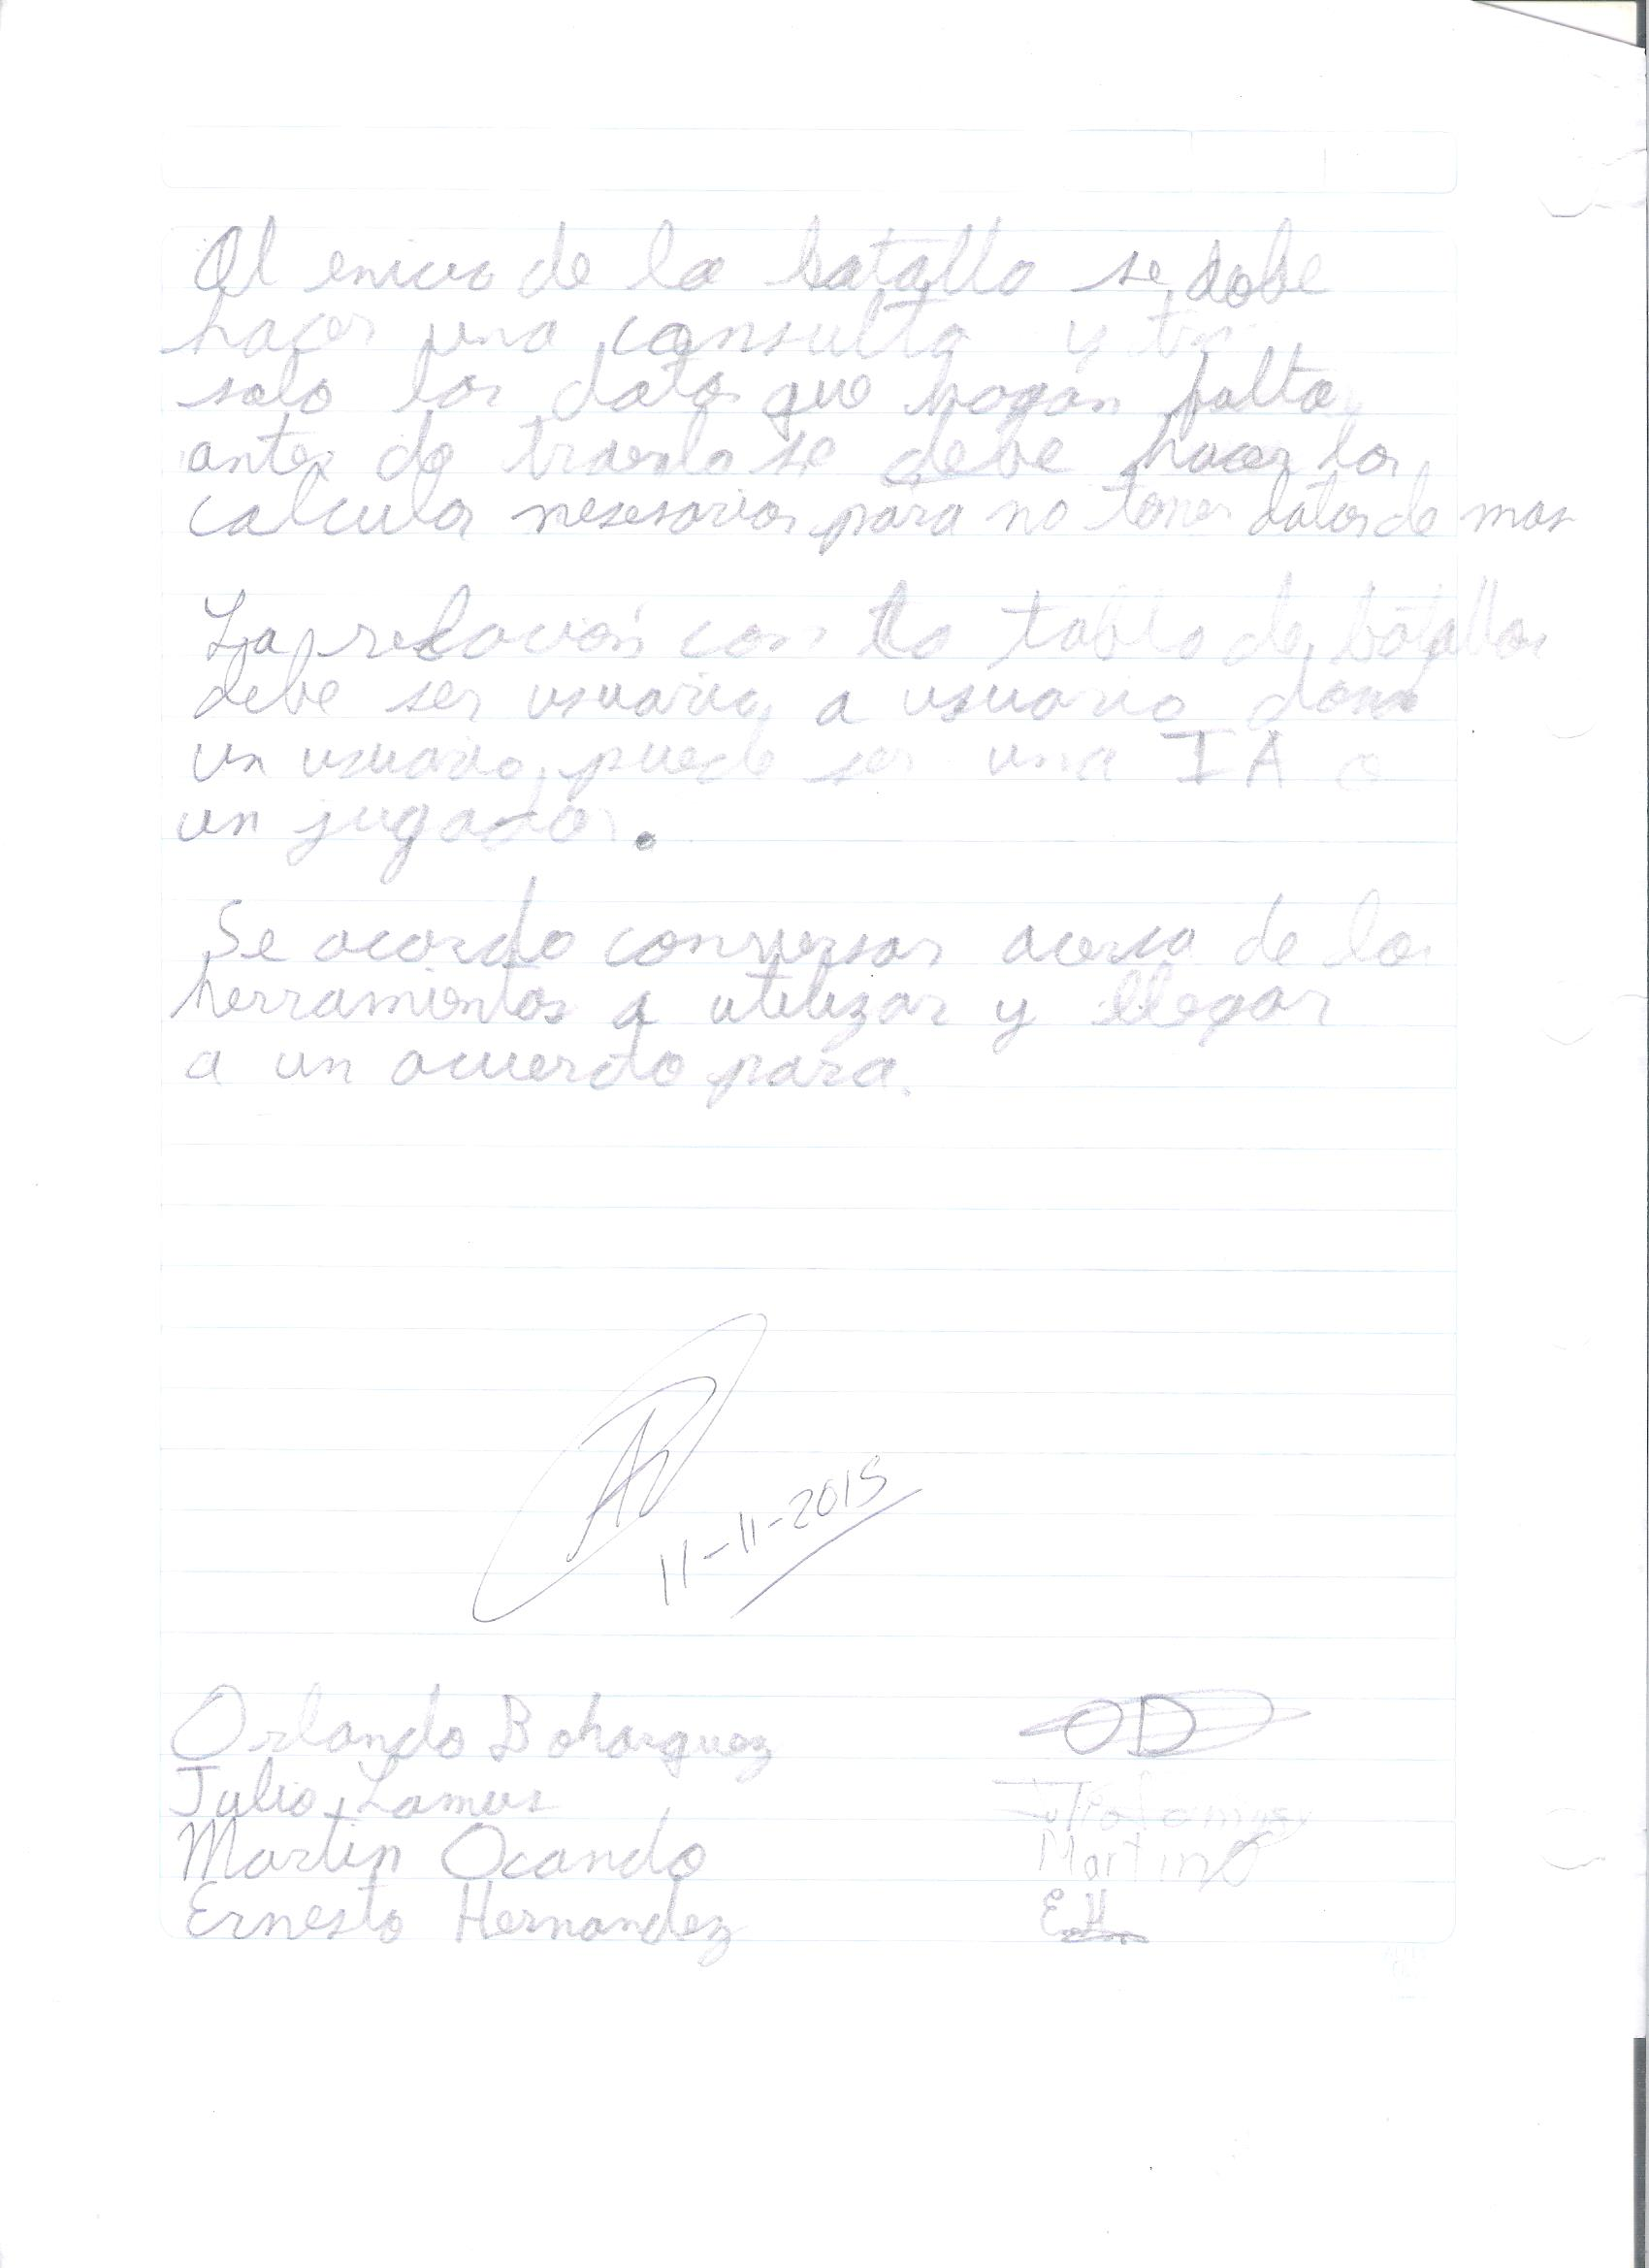 Al enicio de la batalla se debe
hacer una consulta y
solo los datos que hagan falta,
antes de traerlos se debe hacer los
calculos nesesarios para no tener datos de mas
La relación con la tabla de batallas
debe ser usuario a usuario donde
un usuario puede ser una IA o
un jugador.
Se acordo conversar acerca de las
herramientas a utilizar y llegar
a un acuerdo para.
11-11-2015
Orlando Bohorquez OD
Julio Lamus Julio Lamus
Martin Ocando Martin O
Ernesto Hernandez E.H